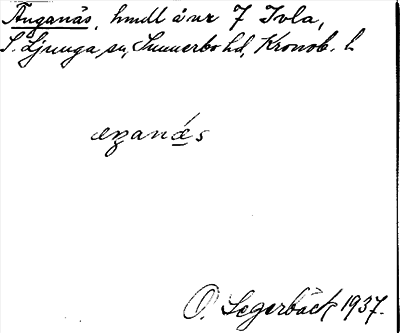 Änganäs, hmdl å nr 7 Ivla,
S. Ljunga sn, Sunnerbo hd, Kronob. l.
æŋanæs
O. Segerbäck 1937.